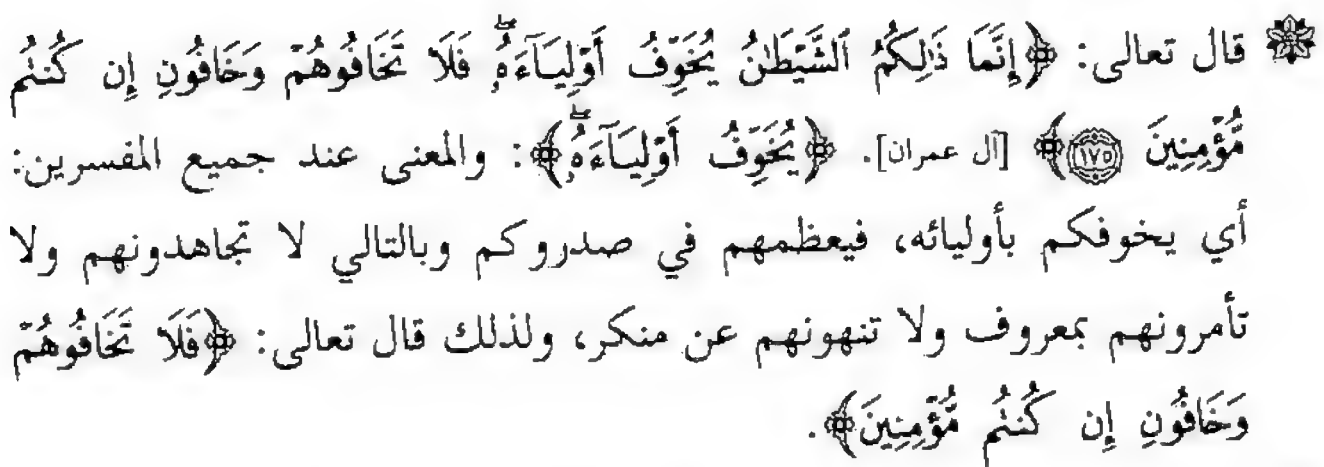 قال تعالى: ﴿إِنَّمَا ذَٰلِكُمُ ٱلشَّيْطَٰنُ يُخَوِّفُ أَوْلِيَآءَهُۥۖ فَلَا تَخَافُوهُمْ وَخَافُونِ إِن كُنتُم
مُّؤْمِنِينَ ١٧٥﴾ [آل عمران]. ﴿يُخَوِّفُ أَوْلِيَآءَهُۥۖ﴾: والمعنى عند جميع المفسرين:
أي يخوفكم بأوليائه، فيعظمهم في صدروكم وبالتالي لا تجاهدونهم ولا
تأمرونهم بمعروف ولا تنهونهم عن منكر، ولذلك قال تعالى: ﴿فَلَا تَخَافُوهُمْ
وَخَافُونِ إِن كُنتُم مُّؤْمِنِينَ﴾.